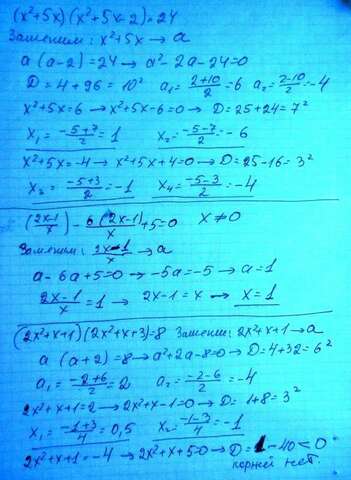 (x²+5x)(x²+5x-2)=24
Заменим: x²+5x → a
a(a-2)=24 → a²-2a-24=0
D=4+96=10² a₁=(2+10)/2=6 a₂=(2-10)/2=-4
x²+5x=6 → x²+5x-6=0 → D=25+24=7²
x₁=(-5+7)/2=1 x₂=(-5-7)/2=-6
x²+5x=-4 → x²+5x+4=0 → D=25-16=3²
x₃=(-5+3)/2=-1 x₄=(-5-3)/2=-4
((2x-1)/x)-6(2x-1)/x+5=0 x≠0
Заменим: (2x-1)/x → a
a-6a+5=0 → -5a=-5 → a=1
(2x-1)/x=1 → 2x-1=x → x=1
(2x²+x+1)(2x²+x+3)=8 Заменим: 2x²+x+1 → a
a(a+2)=8 → a²+2a-8=0 → D=4+32=6²
a₁=(-2+6)/2=2 a₂=(-2-6)/2=-4
2x²+x+1=2 → 2x²+x-1=0 → D=1+8=3²
x₁=(-1+3)/4=0,5 x₂=(-1-3)/4=-1
2x²+x+1=-4 → 2x²+x+5=0 → D=1-40<0
корней нет.